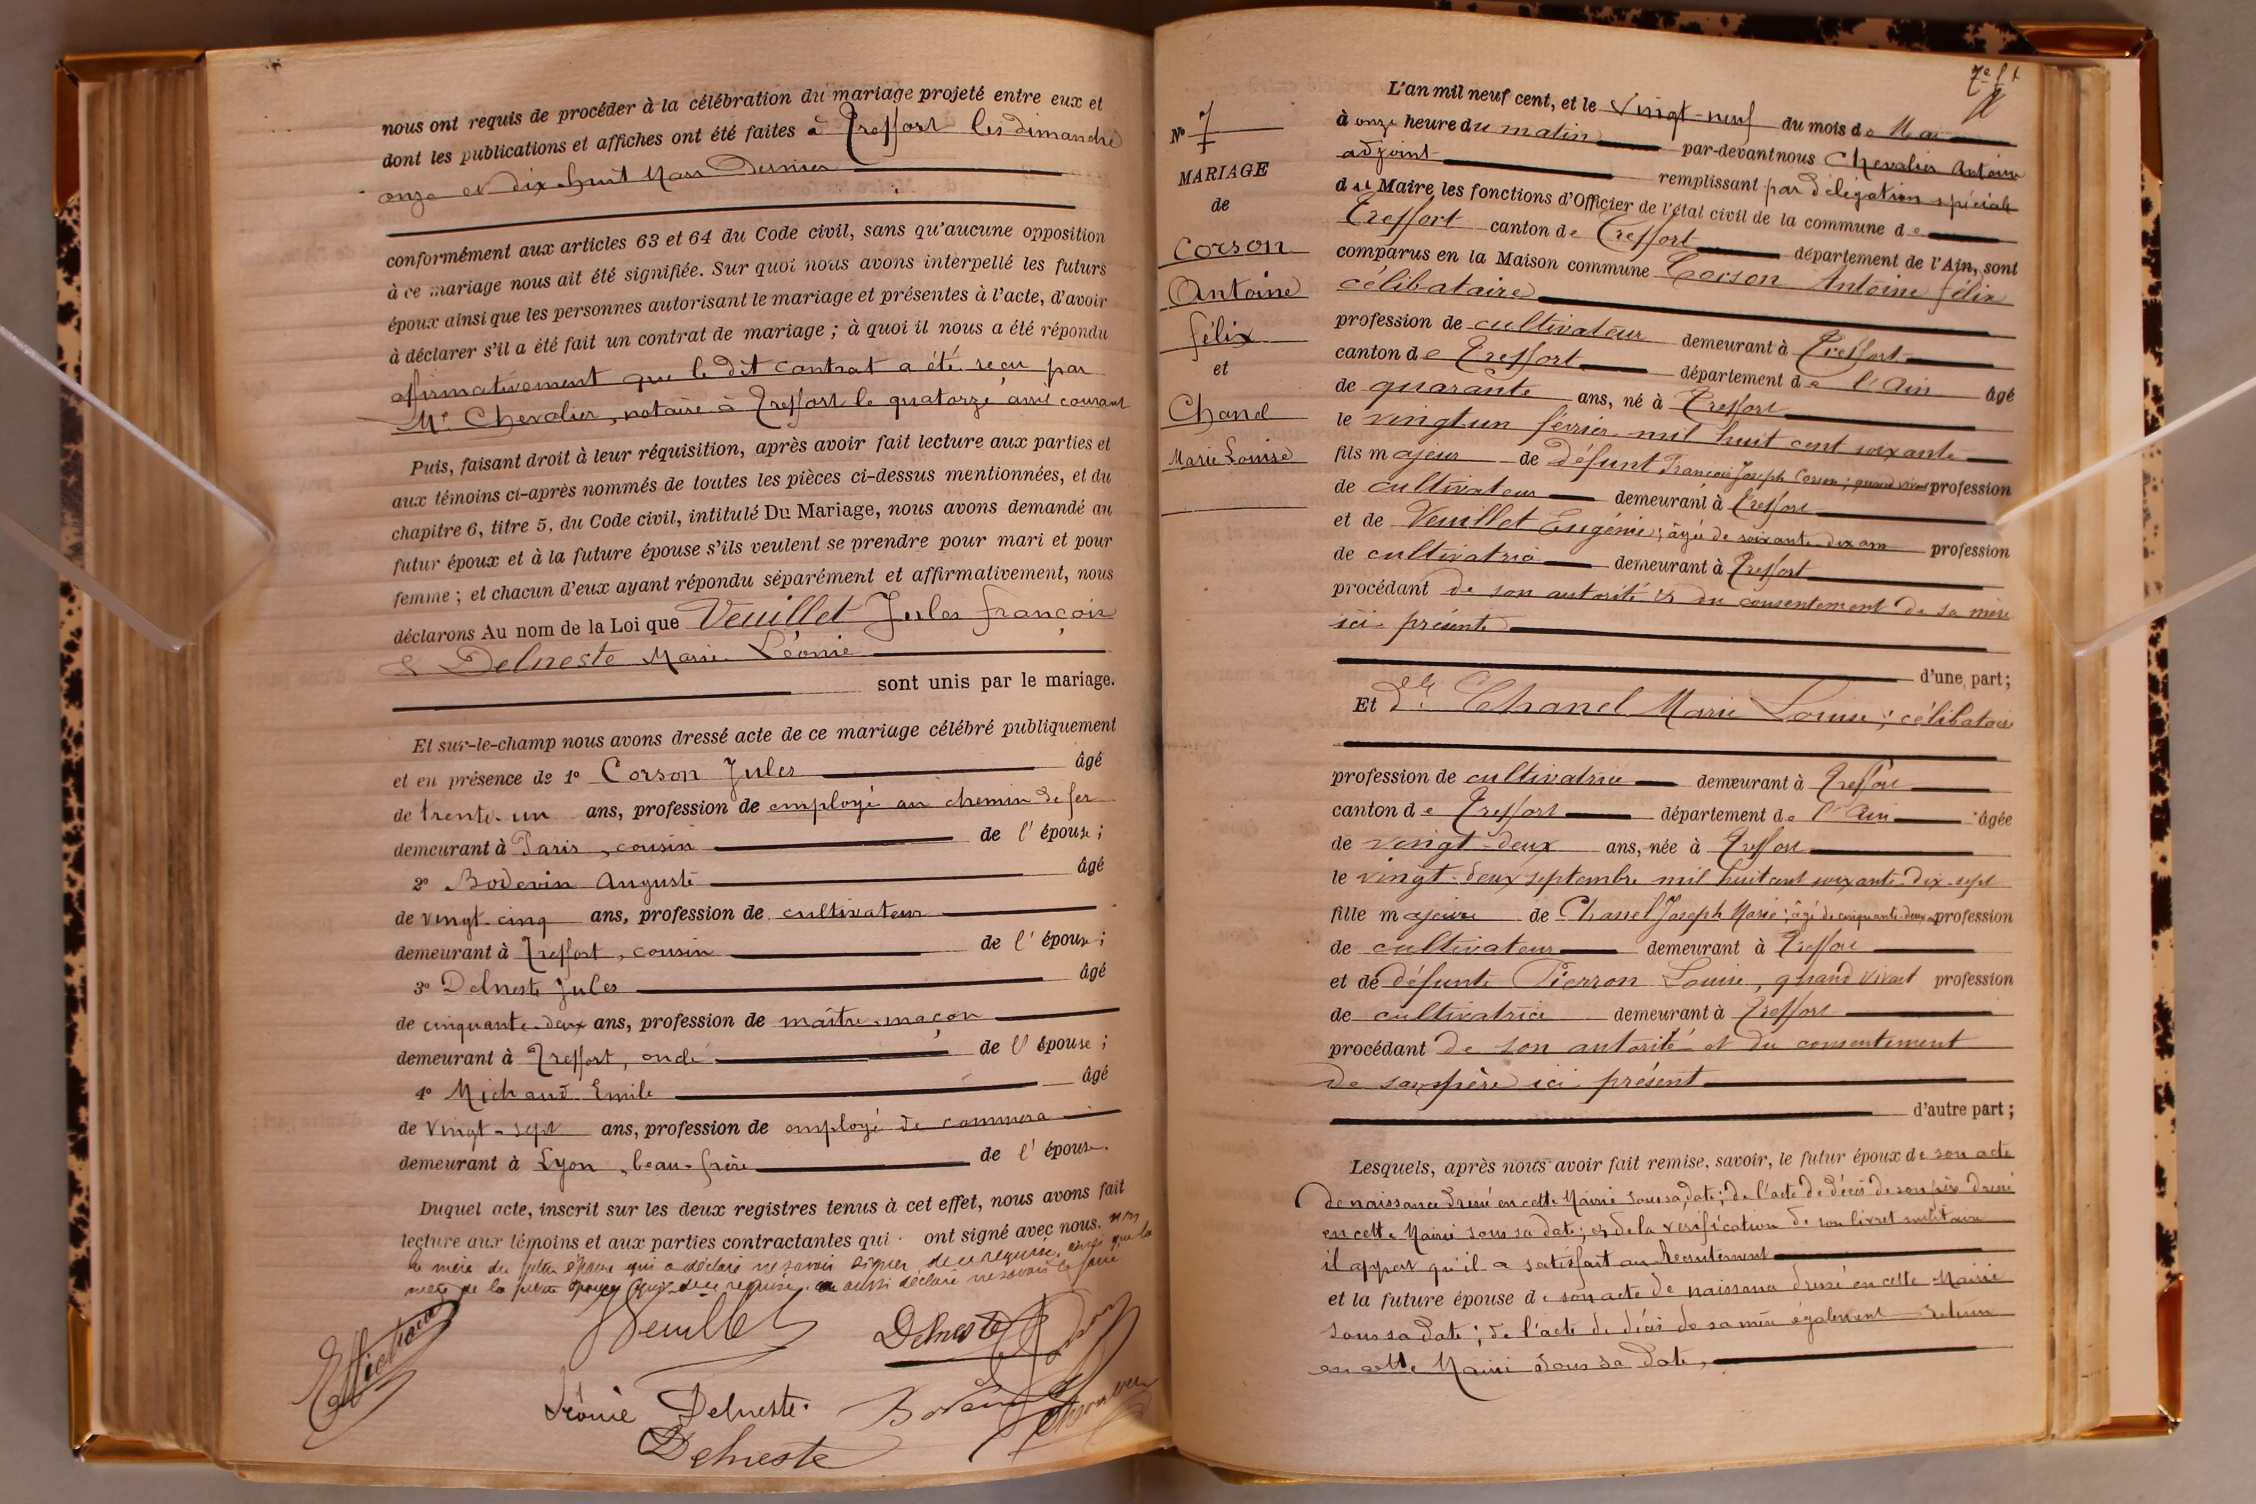 nous ont requis de procéder à la célébration du mariage projeté entre eux et
dont les publications et affiches ont été faites à Treffort les dimanche
onze et dix-huit Mars Dernier
conformément aux articles 63 et 64 du Code civil, sans qu'aucune opposition
à ce mariage nous ait été signifiée. Sur quoi nous avons interpellé les futurs
époux ainsi que les personnes autorisant le mariage et présentes à l'acte, d'avoir
à déclarer s'il a été fait un contrat de mariage ; à quoi il nous a été répondu
affirmativement que le dit contrat a été reçu par
Me Chevalier, notaire à Treffort le quatorze avril courant
Puis, faisant droit à leur réquisition, après avoir fait lecture aux parties et
aux témoins ci-après nommés de toutes les pièces ci-dessus mentionnées, et du
chapitre 6, titre 5, du Code civil, intitulé Du Mariage, nous avons demandé au
futur époux et à la future épouse s'ils veulent se prendre pour mari et pour
femme ; et chacun d'eux ayant répondu séparément et affirmativement, nous
déclarons Au nom de la Loi que Veuillet Jules françois
& Delneste Marie Léonie
sont unis par le mariage.
Et sur-le-champ nous avons dressé acte de ce mariage célébré publiquement
et en présence de 1° Corson Jules âgé
de trente-un ans, profession de employé au chemin de fer
demeurant à Paris, cousin de l'épouse ;
2° Bodevin Auguste âgé
de vingt-cinq ans, profession de cultivateur
demeurant à Treffort, cousin de l'épouse ;
3° Delneste Jules âgé
de cinquante-deux ans, profession de maître-maçon
demeurant à Treffort, oncle de l'épouse ;
4° Michaud Emile âgé
de vingt-sept ans, profession de employé de commerce
demeurant à Lyon, beau-frère de l'épouse.
Duquel acte, inscrit sur les deux registres tenus à cet effet, nous avons fait
lecture aux témoins et aux parties contractantes qui ont signé avec nous. non
la mère du futur époux qui a déclaré ne savoir signer de ce requise, ainsi que la
mère de la future épouse qui de ce requise, a aussi déclaré ne savoir le faire
EMichaud
Veuillet
Delneste
Corson
Léonie Delneste.
Bodevin
Chevalier
Delneste
7e ft
N° 7
MARIAGE
de
Corson
Antoine
félix
et
Chanel
Marie Louise
L'an mil neuf cent, et le vingt-neuf du mois de Mai
à onze heure du matin par-devant nous Chevalier Antoine
adjoint remplissant par délégation spéciale
du Maire les fonctions d'Officier de l'état civil de la commune de
Treffort canton de Treffort département de l'Ain, sont
comparus en la Maison commune Corson Antoine félix
célibataire
profession de cultivateur demeurant à Treffort
canton de Treffort département de l'Ain âgé
de quarante ans, né à Treffort
le vingt un février mil huit cent soixante
fils majeur de défunt François Joseph Corson ; quand vivait profession
de cultivateur demeurant à Treffort
et de Veuillet Eugénie ; âgée de soixante-dix ans profession
de cultivatrice demeurant à Treffort
procédant de son autorité & du consentement de sa mère
ici présente
d'une part ;
Et Dlle Chanel Marie Louise ; célibataire
profession de cultivatrice demeurant à Treffort
canton de Treffort département de l'Ain âgée
de vingt-deux ans, née à Treffort
le vingt-deux septembre mil huit cent soixante-dix-sept
fille majeure de Chanel Joseph Marie ; âgé de cinquante-deux ans profession
de cultivateur demeurant à Treffort
et de défunte Pierron Louise, quand vivait profession
de cultivatrice demeurant à Treffort
procédant de son autorité et du consentement
de son père ici présent
d'autre part ;
Lesquels, après nous avoir fait remise, savoir, le futur époux de son acte
de naissance dressé en cette Mairie sous sa date ; de l'acte de décès de son père dressé
en cette Mairie sous sa date ; et de la vérification de son livret militaire
il appert qu'il a satisfait au Recrutement
et la future épouse de son acte de naissance dressé en cette Mairie
sous sa date ; de l'acte de décès de sa mère également
en cette Mairie sous sa date,